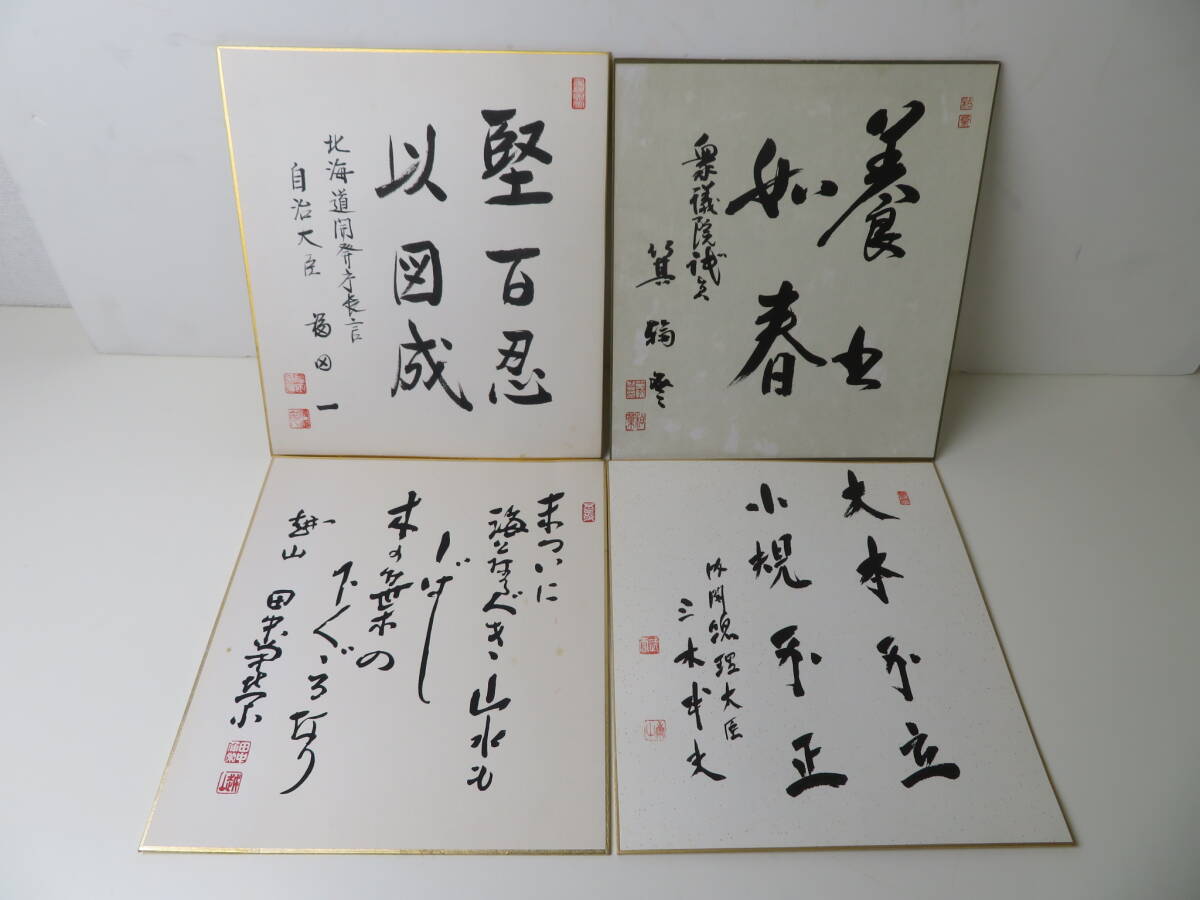 堅百忍
以図成
北海道開発庁長官
自治大臣 福田 一
養之
如春
衆議院議員
箕輪 登
末ついに
海となるべき山水も
しばし
木の葉の
下くぐるなり
越山 田中角栄
大本不立
小規不正
内閣総理大臣
三木武夫